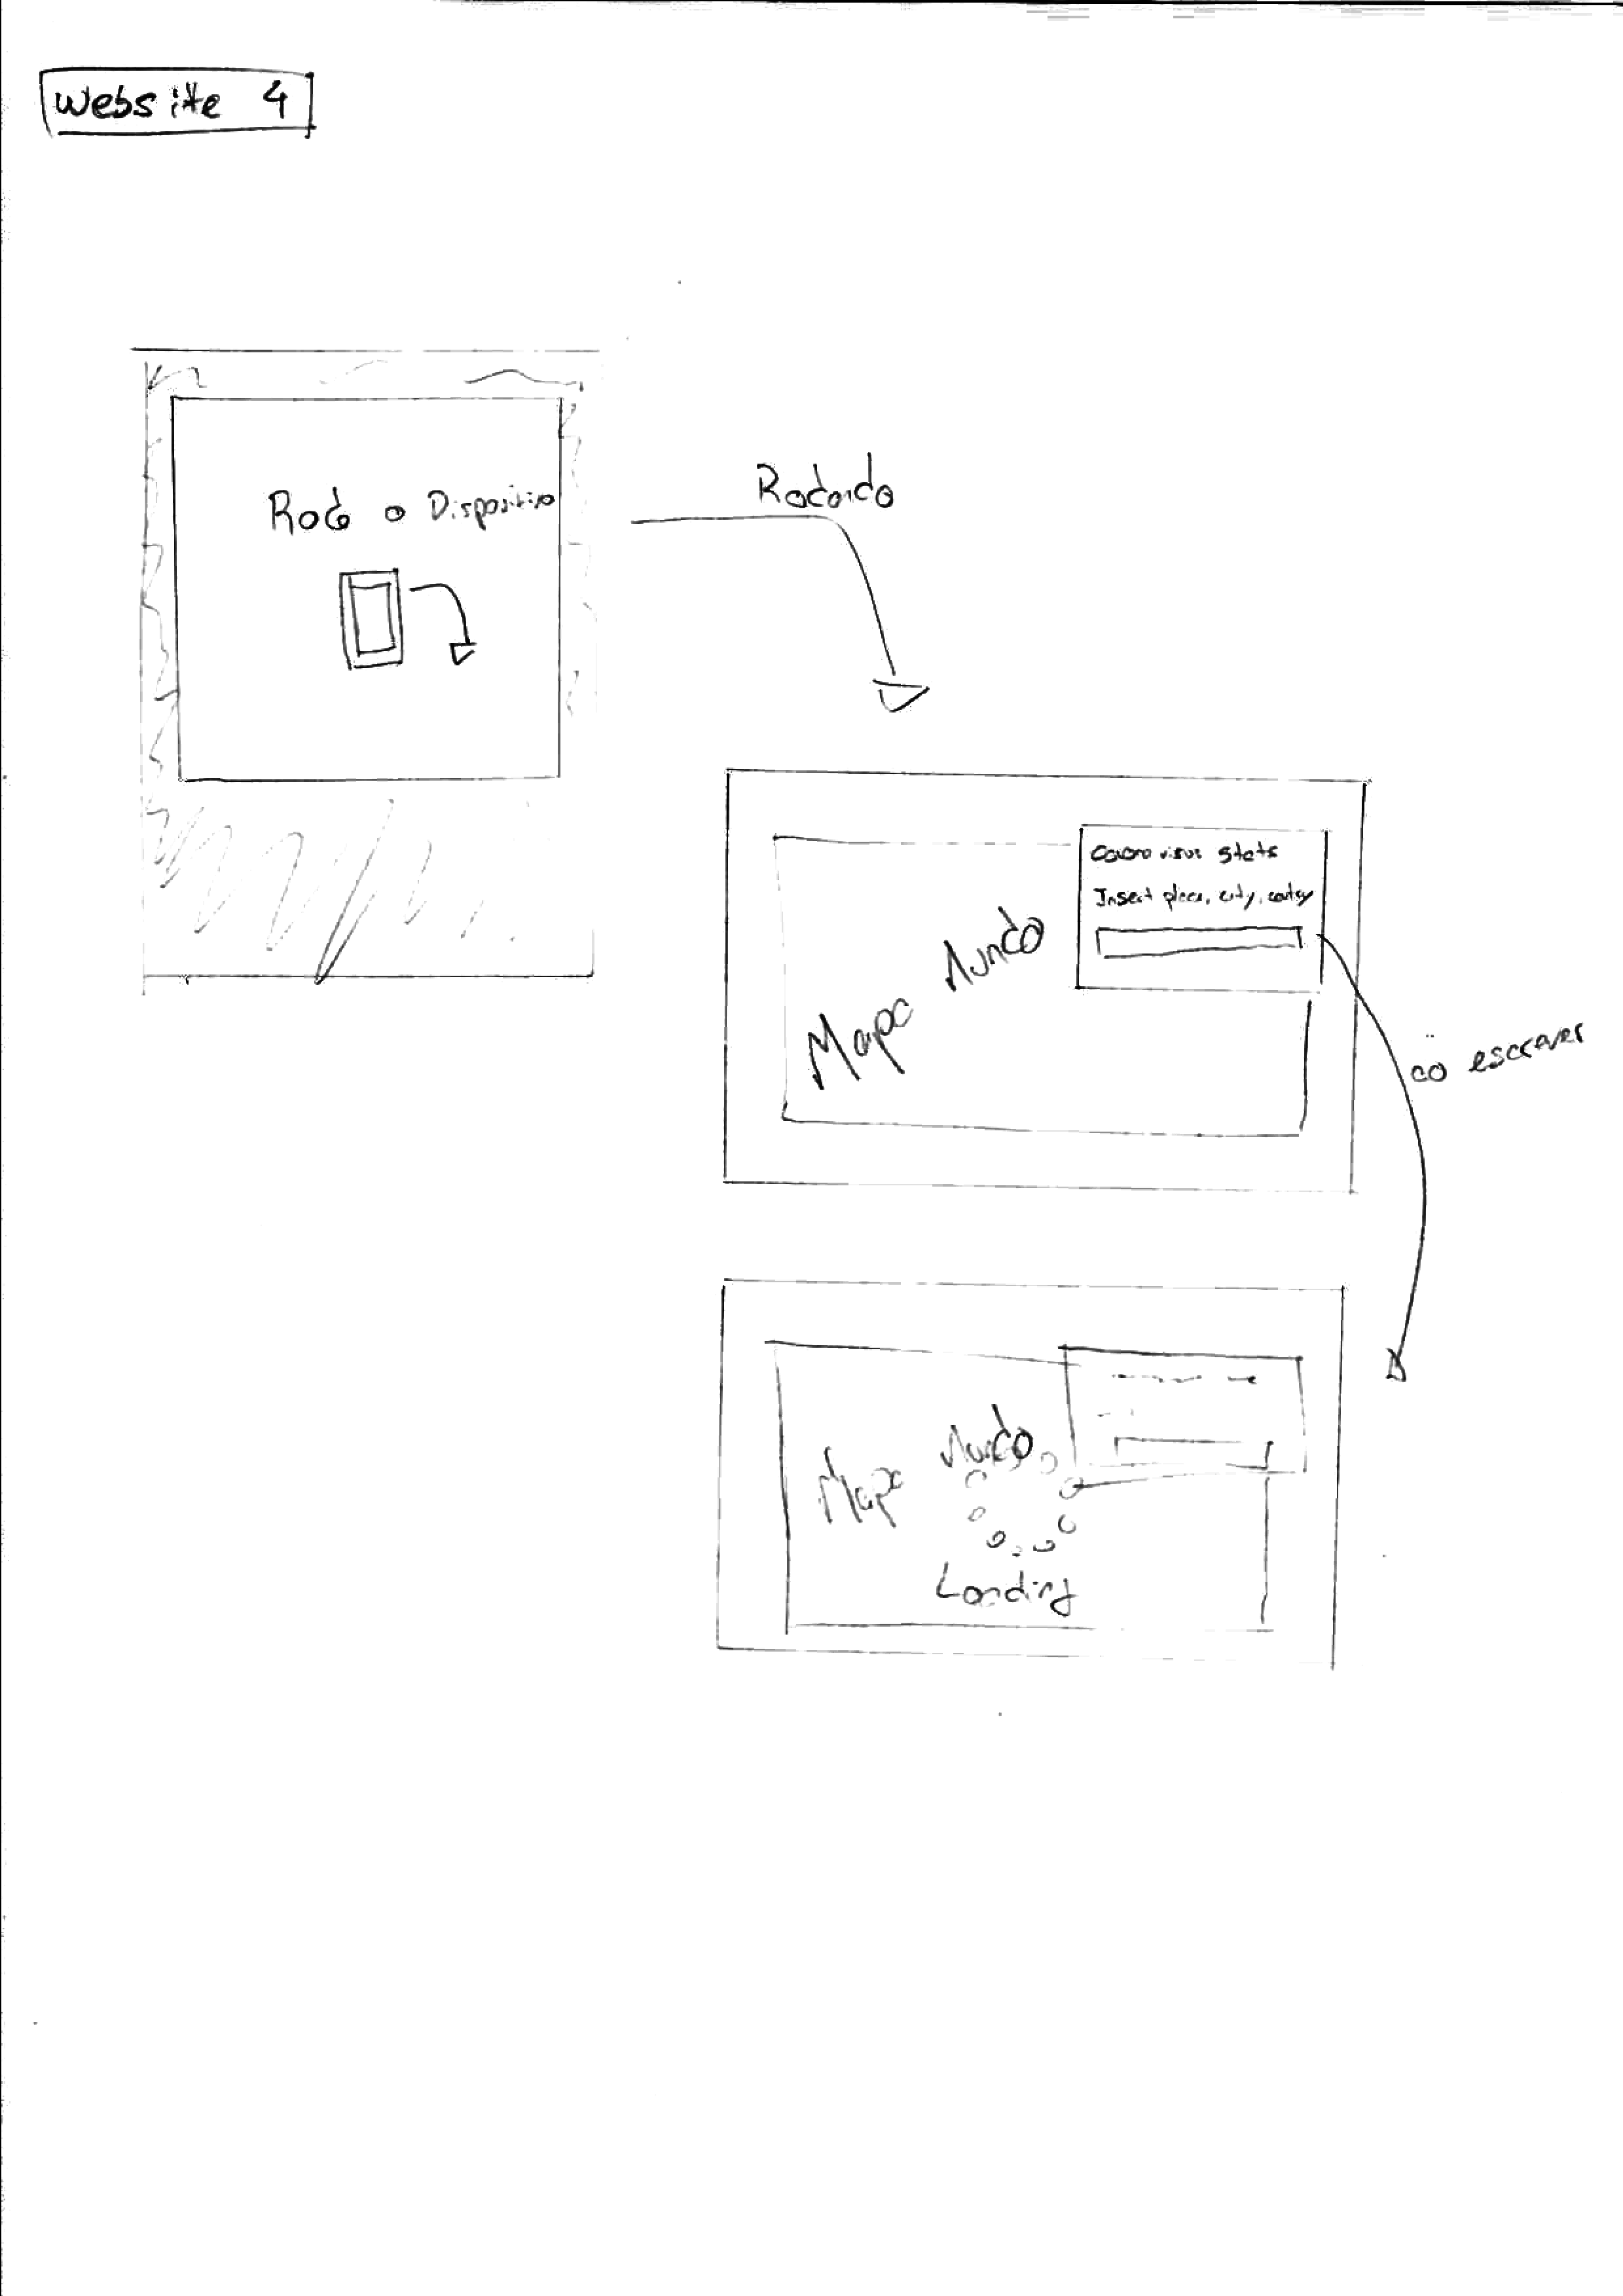 Website 4
Rode o Dispositivo
Rodando
Corona virus stats
Insert place, city, country
Mapa Mundo
ao escrever
Mapa Mundo
Loading